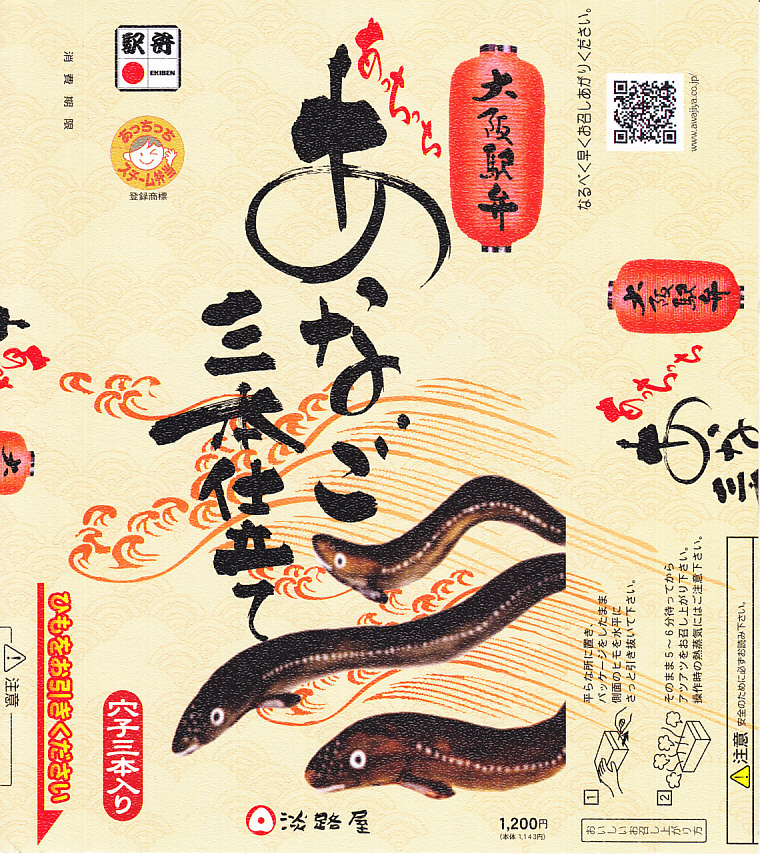 大阪駅弁
あっちっち
あなご
三本仕立て
駅弁
EKIBEN
あっちっち
スチーム弁当
登録商標
消費期限
穴子三本入り
淡路屋
1,200円
(本体 1,143円)
ひもをお引きください
注意
なるべく早くお召しあがりください。
www.awajiya.co.jp/
大阪駅弁
あっちっち
あな
三
おいしいお召し上がり方
1
平らな所に置き、
パッケージをしたまま
側面のヒモを水平に
さっと引き抜いて下さい。
2
そのまま5～6分待ってから
アツアツをお召し上がり下さい。
操作時の熱蒸気にはご注意下さい。
注意 安全のために必ずお読み下さい。